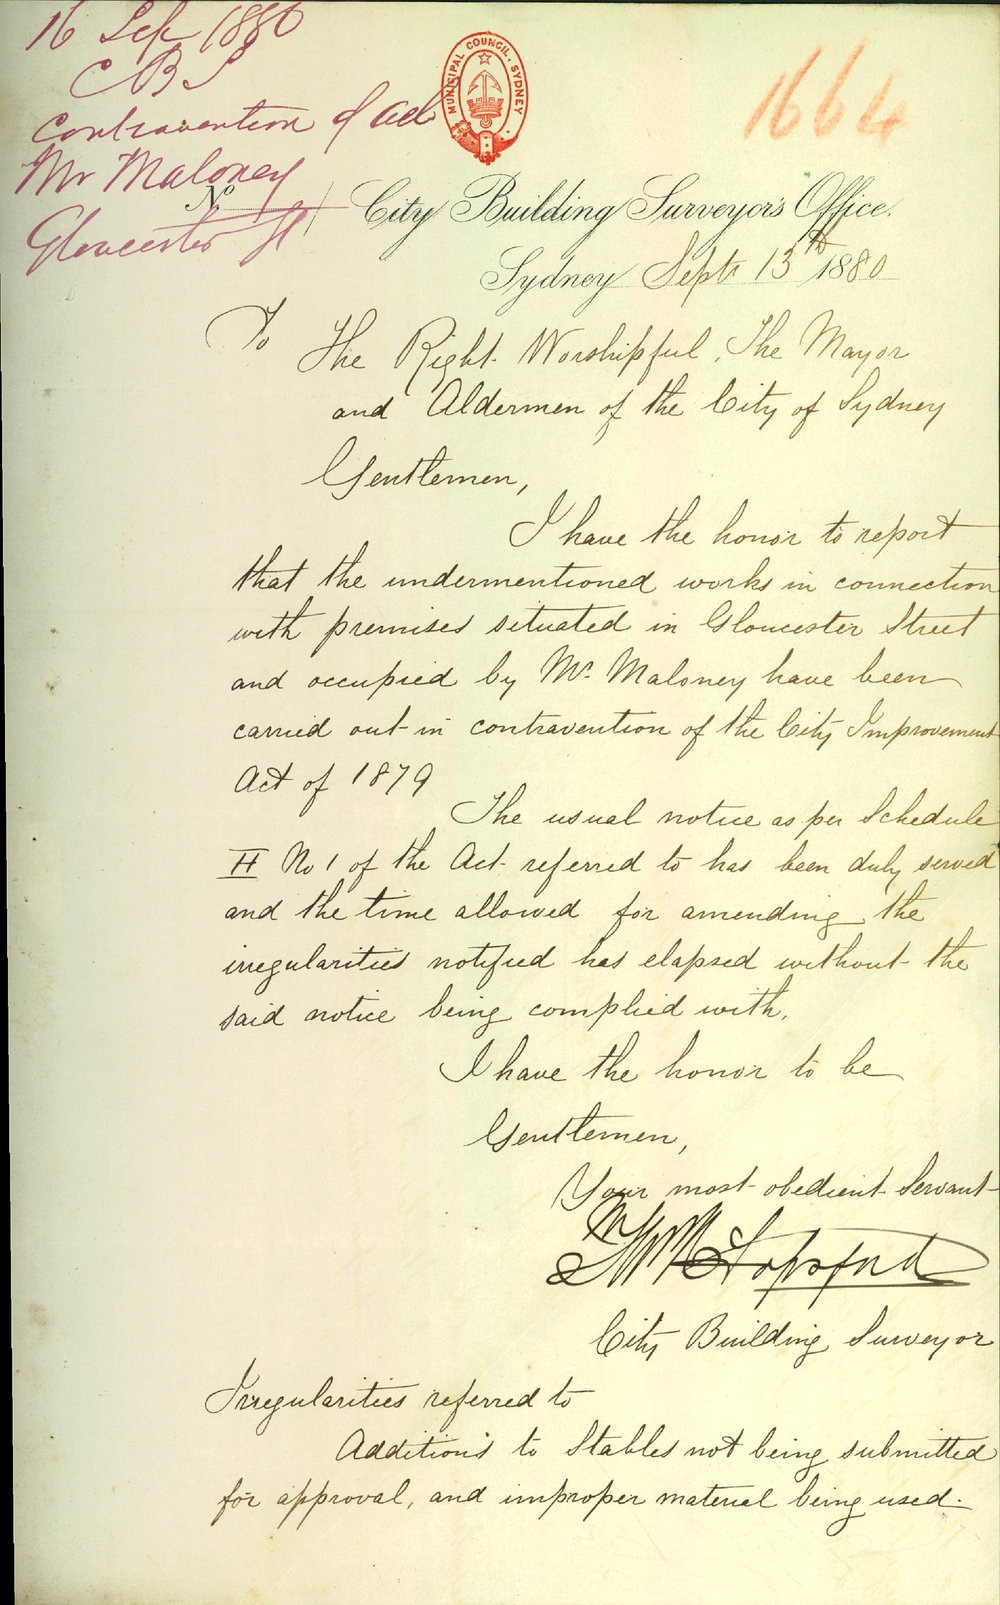 16 Sep 1880
CBS
Contravention of Act
Mr Maloney
Gloucester St
MUNICIPAL COUNCIL, SYDNEY
1664
No
City Building Surveyor's Office.
Sydney Septr 13th 1880
To The Right Worshipful, The Mayor
and Aldermen of the City of Sydney
Gentlemen,
I have the honor to report
that the undermentioned works in connection
with premises situated in Gloucester Street
and occupied by Mr. Maloney have been
carried out in contravention of the City Improvement
Act of 1879
The usual notice as per Schedule
H No 1 of the Act referred to has been duly served
and the time allowed for amending the
irregularities notified has elapsed without the
said notice being complied with.
I have the honor to be
Gentlemen,
Your most obedient Servant
Stopford
City Building Surveyor
Irregularities referred to
Additions to Stables not being submitted
for approval, and improper material being used.